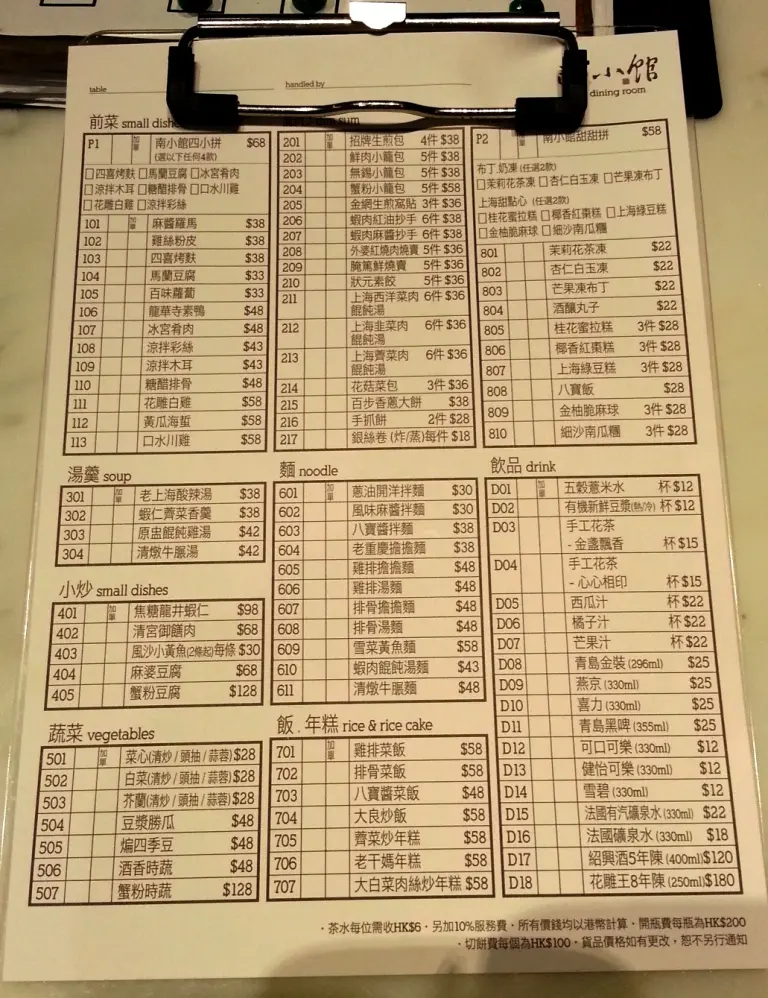 table
handled by
小館
dining room
前菜 small dishes
P1 加單 南小館四小拼 $68
(選以下任何4款)
□四喜烤麩 □馬蘭豆腐 □冰宮肴肉
□涼拌木耳 □糖醋排骨 □口水川雞
□花雕白雞 □涼拌彩絲
101 加單 麻醬羅馬 $38
102 雞絲粉皮 $38
103 四喜烤麩 $38
104 馬蘭豆腐 $33
105 百味蘿蔔 $33
106 龍華寺素鴨 $48
107 冰宮肴肉 $48
108 涼拌彩絲 $43
109 涼拌木耳 $43
110 糖醋排骨 $48
111 花雕白雞 $58
112 黃瓜海蜇 $58
113 口水川雞 $58
湯羹 soup
301 加單 老上海酸辣湯 $38
302 蝦仁薺菜香羹 $38
303 原盅餛飩雞湯 $42
304 清燉牛𦟌湯 $42
小炒 small dishes
401 加單 焦糖龍井蝦仁 $98
402 清宮御膳肉 $68
403 風沙小黃魚(2條起)每條 $30
404 麻婆豆腐 $68
405 蟹粉豆腐 $128
蔬菜 vegetables
501 加單 菜心(清炒/頭抽/蒜蓉) $28
502 白菜(清炒/頭抽/蒜蓉) $28
503 芥蘭(清炒/頭抽/蒜蓉) $28
504 豆漿勝瓜 $48
505 煸四季豆 $48
506 酒香時蔬 $48
507 蟹粉時蔬 $128
sum
201 加單 招牌生煎包 4件 $38
202 鮮肉小籠包 5件 $38
203 無錫小籠包 5件 $38
204 蟹粉小籠包 5件 $58
205 金網生煎窩貼 3件 $36
206 蝦肉紅油抄手 6件 $38
207 蝦肉麻醬抄手 6件 $38
208 外婆紅燒肉燒賣 5件 $36
209 腌篤鮮燒賣 5件 $36
210 狀元素餃 5件 $36
211 上海西洋菜肉 6件 $36
餛飩湯
212 上海韭菜肉 6件 $36
餛飩湯
213 上海薺菜肉 6件 $36
餛飩湯
214 花菇菜包 3件 $36
215 百步香蔥大餅 $38
216 手抓餅 2件 $28
217 銀絲卷 (炸/蒸)每件 $18
麵 noodle
601 加單 蔥油開洋拌麵 $30
602 風味麻醬拌麵 $30
603 八寶醬拌麵 $38
604 老重慶擔擔麵 $38
605 雞排擔擔麵 $48
606 雞排湯麵 $48
607 排骨擔擔麵 $48
608 排骨湯麵 $48
609 雪菜黃魚麵 $58
610 蝦肉餛飩湯麵 $43
611 清燉牛𦟌麵 $48
飯 . 年糕 rice & rice cake
701 加單 雞排菜飯 $58
702 排骨菜飯 $58
703 八寶醬菜飯 $48
704 大良炒飯 $58
705 薺菜炒年糕 $58
706 老干媽年糕 $58
707 大白菜肉絲炒年糕 $58
P2 加單 南小館甜甜拼 $58
布丁.奶凍 (任選2款)
□茉莉花茶凍 □杏仁白玉凍 □芒果凍布丁
上海甜點心 (任選2款)
□桂花蜜拉糕 □椰香紅棗糕 □上海綠豆糕
□金柚脆麻球 □細沙南瓜糰
801 茉莉花茶凍 $22
802 杏仁白玉凍 $22
803 芒果凍布丁 $22
804 酒釀丸子 $22
805 桂花蜜拉糕 3件 $28
806 椰香紅棗糕 3件 $28
807 上海綠豆糕 3件 $28
808 八寶飯 $28
809 金柚脆麻球 3件 $28
810 細沙南瓜糰 3件 $28
飲品 drink
D01 加單 五穀薏米水 杯 $12
D02 有機新鮮豆漿(熱/冷) 杯 $12
D03 手工花茶
- 金盞飄香 杯 $15
D04 手工花茶
- 心心相印 杯 $15
D05 西瓜汁 杯 $22
D06 橘子汁 杯 $22
D07 芒果汁 杯 $22
D08 青島金裝 (296ml) $25
D09 燕京 (330ml) $25
D10 喜力 (330ml) $25
D11 青島黑啤 (355ml) $25
D12 可口可樂 (330ml) $12
D13 健怡可樂 (330ml) $12
D14 雪碧 (330ml) $12
D15 法國有汽礦泉水 (330ml) $22
D16 法國礦泉水 (330ml) $18
D17 紹興酒5年陳 (400ml) $120
D18 花雕王8年陳 (250ml) $180
·茶水每位需收HK$6·另加10%服務費·所有價錢均以港幣計算·開瓶費每瓶為HK$200
·切餅費每個為HK$100·貨品價格如有更改，恕不另行通知